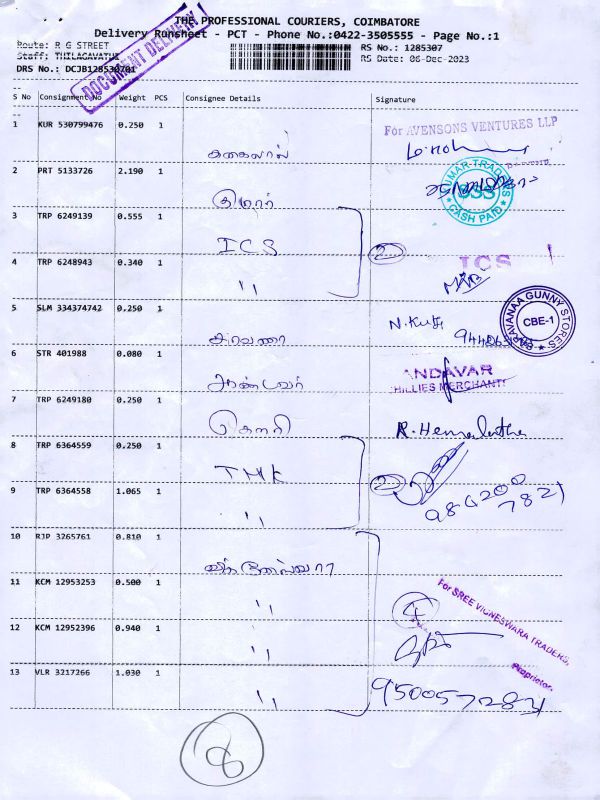 THE PROFESSIONAL COURIERS, COIMBATORE
Delivery Runsheet - PCT - Phone No.:0422-3505555 - Page No.:1
Route: R G STREET RS No.: 1285307
Staff: THILAGAVATHI RS Date: 06-Dec-2023
DRS No.: DCJB128530701
DOCUMENT DELIVERY
S No Consignment No Weight PCS Consignee Details Signature
For AVENSONS VENTURES LLP
1 KUR 530799476 0.250 1
2 PRT 5133726 2.190 1 குமார்
KUMAR TRADERS SSS CASH PAID
3 TRP 6249139 0.555 1 ICS 2
4 TRP 6248943 0.340 1 " ICS
5 SLM 334374742 0.250 1 சரவணா N.
SARAVANAA GUNNY STORES CBE-1
6 STR 401988 0.080 1 ஆண்டவர் ANDAVAR
CHILLIES MERCHANT
7 TRP 6249180 0.250 1 கௌரி R. Hemalatha
8 TRP 6364559 0.250 1 TMK 2
9 TRP 6364558 1.065 1 " 984200
7821
10 RJP 3265761 0.810 1
11 KCM 12953253 0.500 1 " 4
For SREE VIGNESWARA TRADERS,
Proprietor.
12 KCM 12952396 0.940 1 "
13 VLR 3217266 1.030 1 "
8